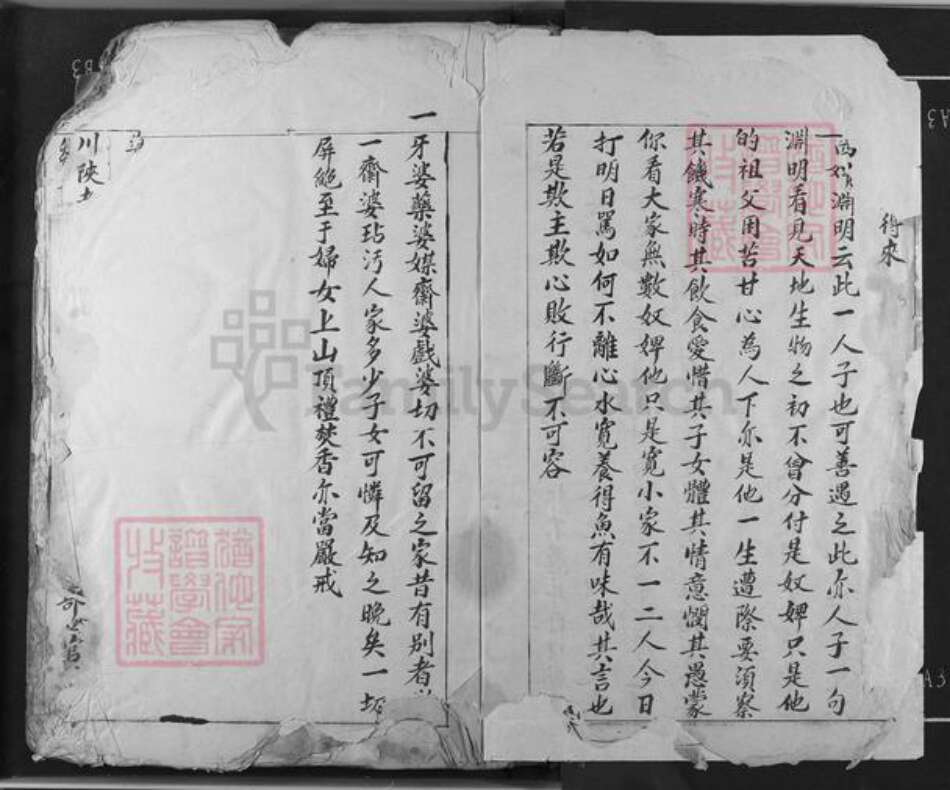 待來
西賓淵明云此一人子也可善遇之此亦人子一句
淵明看見天地生物之初不曾分付是奴婢只是他
的祖父用苦甘心為人下亦是他一生遭際要須察
其饑寒時其飲食愛惜其子女體其情意憫其愚蒙
你看大家無數奴婢他只是寬小家不一二人今日
打明日罵如何不離心水寬養得魚有味哉其言也
若是欺主欺心敗行斷不可容
一牙婆藥婆媒齋婆戲婆切不可留之家昔有別者
一齋婆玷污人家多少子女可憐及知之晚矣一切
屏絕至于婦女上山頂禮焚香亦當嚴戒
川陝
FamilySearch
A3
A3